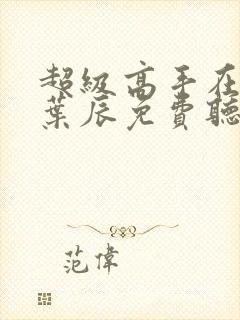 超級高手在
葉辰免費聽
范偉